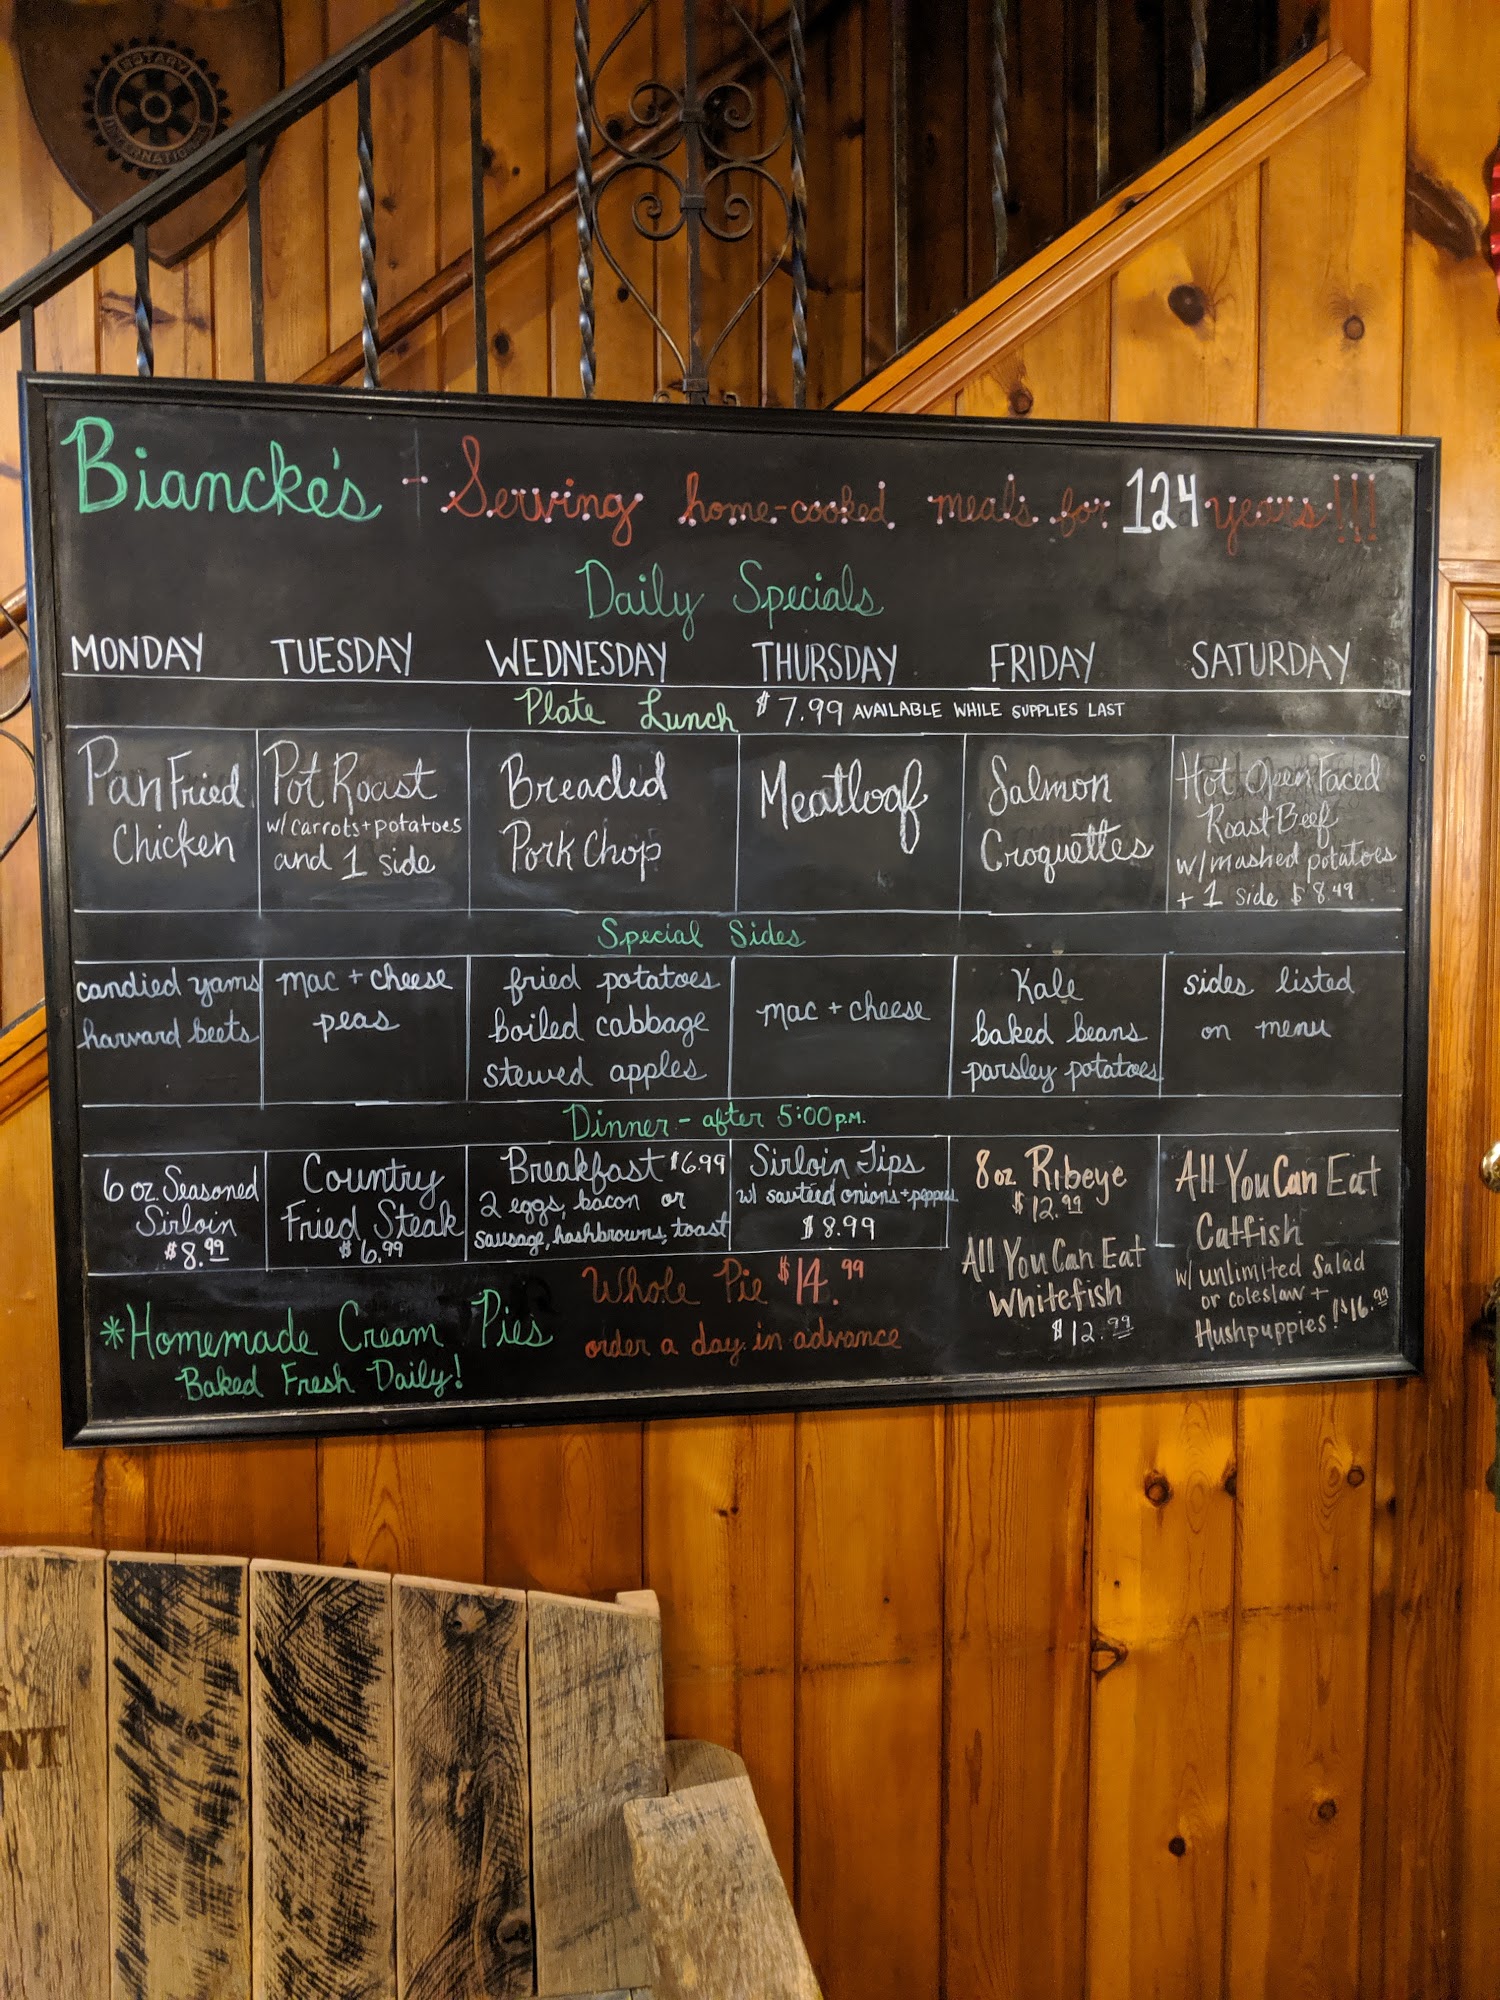 ROTARY
INTERNATIONAL
Biancke's - Serving home-cooked meals for 124 years!!!
Daily Specials
MONDAY TUESDAY WEDNESDAY THURSDAY FRIDAY SATURDAY
Plate Lunch $7.99 AVAILABLE WHILE SUPPLIES LAST
Pan Fried
Chicken
Pot Roast
w/carrots+potatoes
and 1 side
Breaded
Pork Chop
Meatloaf
Salmon
Croquettes
Hot Open Faced
Roast Beef
w/mashed potatoes
+ 1 side $8.49
Special Sides
candied yams
harvard beets
mac + cheese
peas
fried potatoes
boiled cabbage
stewed apples
mac + cheese
Kale
baked beans
parsley potatoes
sides listed
on menu
Dinner - after 5:00 P.M.
6 oz. Seasoned
Sirloin
$8.99
Country
Fried Steak
$6.99
Breakfast $6.99
2 eggs, bacon or
sausage, hashbrowns, toast
Sirloin Tips
w/ sauteed onions+peppers
$8.99
8oz Ribeye
$12.99
All You Can Eat
Whitefish
$12.99
All You Can Eat
Catfish
w/ unlimited salad
or coleslaw +
Hushpuppies! $16.99
*Homemade Cream Pies
Baked Fresh Daily!
Whole Pie $14.99
order a day in advance